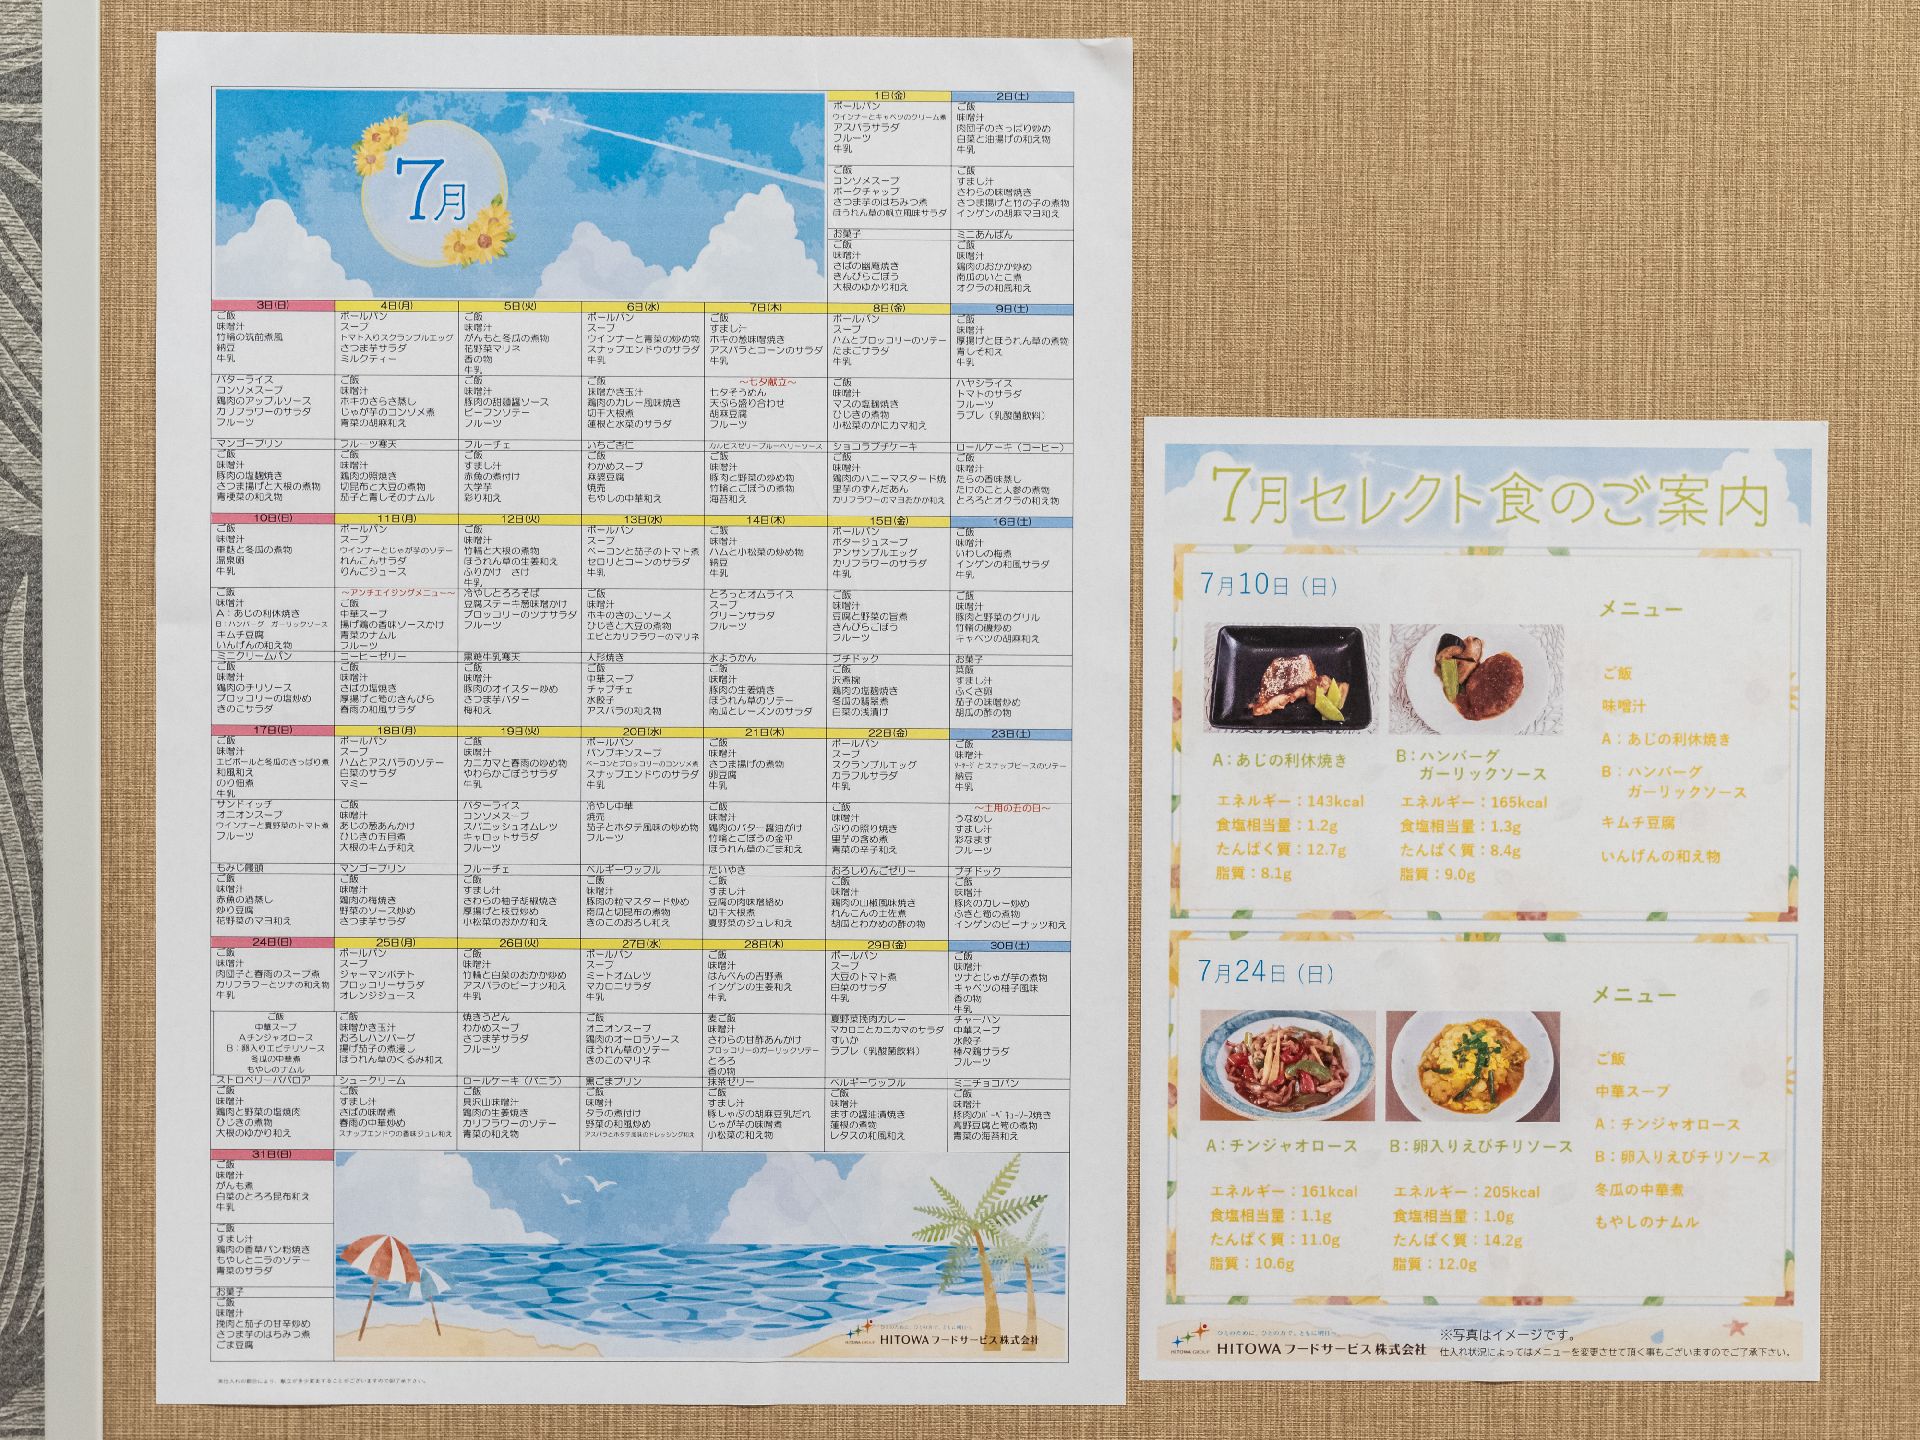 7月
1日(金)
ボールパン
ウインナーとキャベツのクリーム煮
アスパラサラダ
フルーツ
牛乳
ご飯
コンソメスープ
ポークチャップ
さつま芋のはちみつ煮
ほうれん草の帆立風味サラダ
お菓子
ご飯
味噌汁
さばの幽庵焼き
きんぴらごぼう
大根のゆかり和え
2日(土)
ご飯
味噌汁
肉団子のさっぱり炒め
白菜と油揚げの和え物
牛乳
ご飯
すまし汁
さわらの味噌焼き
さつま揚げと竹の子の煮物
インゲンの胡麻マヨ和え
ミニあんぱん
ご飯
味噌汁
鶏肉のおかか炒め
南瓜のいとこ煮
オクラの和風和え
3日(日)
ご飯
味噌汁
竹輪の筑前煮風
納豆
牛乳
バターライス
コンソメスープ
鶏肉のアップルソース
カリフラワーのサラダ
フルーツ
マンゴープリン
ご飯
味噌汁
豚肉の塩麹焼き
さつま揚げと大根の煮物
青梗菜の和え物
4日(月)
ボールパン
スープ
トマト入りスクランブルエッグ
さつま芋サラダ
ミルクティー
ご飯
味噌汁
ホキのさらさ蒸し
じゃが芋のコンソメ煮
青菜の胡麻和え
フルーツ寒天
ご飯
味噌汁
鶏肉の照焼き
切昆布と大豆の煮物
茄子と青しそのナムル
5日(火)
ご飯
味噌汁
がんもと冬瓜の煮物
花野菜マリネ
香の物
牛乳
ご飯
味噌汁
豚肉の甜麺醤ソース
ビーフンソテー
フルーツ
フルーチェ
ご飯
すまし汁
赤魚の煮付け
大学芋
彩り和え
6日(水)
ボールパン
スープ
ウインナーと青菜の炒め物
スナップエンドウのサラダ
牛乳
ご飯
味噌かき玉汁
鶏肉のカレー風味焼き
切干大根煮
蓮根と水菜のサラダ
いちご杏仁
ご飯
わかめスープ
麻婆豆腐
焼売
もやしの中華和え
7日(木)
ご飯
すまし汁
ホキの葱味噌焼き
アスパラとコーンのサラダ
牛乳
～七夕献立～
七夕そうめん
天ぷら盛り合わせ
胡麻豆腐
フルーツ
カルピスゼリーブルーベリーソース
ご飯
味噌汁
豚肉と野菜の炒め物
竹輪とごぼうの煮物
海苔和え
8日(金)
ボールパン
スープ
ハムとブロッコリーのソテー
たまごサラダ
牛乳
ご飯
味噌汁
マスの塩麹焼き
ひじきの煮物
小松菜のかにカマ和え
ショコラプチケーキ
ご飯
味噌汁
鶏肉のハニーマスタード焼
里芋のずんだあん
カリフラワーのマヨおかか和え
9日(土)
ご飯
味噌汁
厚揚げとほうれん草の煮物
青しそ和え
牛乳
ハヤシライス
トマトのサラダ
フルーツ
ラブレ（乳酸菌飲料）
ロールケーキ（コーヒー）
ご飯
味噌汁
たらの香味蒸し
たけのこと人参の煮物
とろろとオクラの和え物
10日(日)
ご飯
味噌汁
車麩と冬瓜の煮物
温泉卵
牛乳
ご飯
味噌汁
A：あじの利休焼き
B：ハンバーグ ガーリックソース
キムチ豆腐
いんげんの和え物
ミニクリームパン
ご飯
味噌汁
鶏肉のチリソース
ブロッコリーの塩炒め
きのこサラダ
11日(月)
ボールパン
スープ
ウインナーとじゃが芋のソテー
れんこんサラダ
りんごジュース
～アンチエイジングメニュー～
ご飯
中華スープ
揚げ鶏の香味ソースかけ
青菜のナムル
フルーツ
コーヒーゼリー
ご飯
味噌汁
さばの塩焼き
厚揚げと筍のきんぴら
春雨の和風サラダ
12日(火)
ご飯
味噌汁
竹輪と大根の煮物
ほうれん草の生姜和え
ふりかけ さけ
牛乳
冷やしとろろそば
豆腐ステーキ葱味噌かけ
ブロッコリーのツナサラダ
フルーツ
黒糖牛乳寒天
ご飯
味噌汁
豚肉のオイスター炒め
さつま芋バター
梅和え
13日(水)
ボールパン
スープ
ベーコンと茄子のトマト煮
セロリとコーンのサラダ
牛乳
ご飯
味噌汁
ホキのきのこソース
ひじきと大豆の煮物
エビとカリフラワーのマリネ
人形焼き
ご飯
中華スープ
チャプチェ
水餃子
アスパラの和え物
14日(木)
ご飯
味噌汁
ハムと小松菜の炒め物
納豆
牛乳
とろっとオムライス
スープ
グリーンサラダ
フルーツ
水ようかん
ご飯
味噌汁
豚肉の生姜焼き
ほうれん草のソテー
南瓜とレーズンのサラダ
15日(金)
ボールパン
ポタージュスープ
アンサンブルエッグ
カリフラワーのサラダ
牛乳
ご飯
味噌汁
豆腐と野菜の旨煮
きんぴらごぼう
フルーツ
プチドック
ご飯
沢煮椀
鶏肉の塩麹焼き
冬瓜の翡翠煮
白菜の浅漬け
16日(土)
ご飯
味噌汁
いわしの梅煮
インゲンの和風サラダ
牛乳
ご飯
味噌汁
豚肉と野菜のグリル
竹輪の磯炒め
キャベツの胡麻和え
お菓子
菜飯
すまし汁
ふくさ卵
茄子の味噌炒め
胡瓜の酢の物
17日(日)
ご飯
味噌汁
エビボールと冬瓜のさっぱり煮
和風和え
のり佃煮
牛乳
サンドイッチ
オニオンスープ
ウインナーと夏野菜のトマト煮
フルーツ
もみじ饅頭
ご飯
味噌汁
赤魚の酒蒸し
炒り豆腐
花野菜のマヨ和え
18日(月)
ボールパン
スープ
ハムとアスパラのソテー
白菜のサラダ
マミー
ご飯
味噌汁
あじの葱あんかけ
ひじきの五目煮
大根のキムチ和え
マンゴープリン
ご飯
味噌汁
鶏肉の梅焼き
野菜のソース炒め
さつま芋サラダ
19日(火)
ご飯
味噌汁
カニカマと春雨の炒め物
やわらかごぼうサラダ
牛乳
バターライス
コンソメスープ
スパニッシュオムレツ
キャロットサラダ
フルーツ
フルーチェ
ご飯
すまし汁
さわらの柚子胡椒焼き
厚揚げと枝豆炒め
小松菜のおかか和え
20日(水)
ボールパン
パンプキンスープ
ベーコンとブロッコリーのコンソメ煮
スナップエンドウのサラダ
牛乳
冷やし中華
焼売
茄子とホタテ風味の炒め物
フルーツ
ベルギーワッフル
ご飯
味噌汁
豚肉の粒マスタード炒め
南瓜と切昆布の煮物
きのこのおろし和え
21日(木)
ご飯
味噌汁
さつま揚げの煮物
卵豆腐
牛乳
ご飯
味噌汁
鶏肉のバター醤油がけ
竹輪とごぼうの金平
ほうれん草のごま和え
たいやき
ご飯
すまし汁
豆腐の肉味噌絡め
切干大根煮
夏野菜のジュレ和え
22日(金)
ボールパン
スープ
スクランブルエッグ
カラフルサラダ
牛乳
ご飯
味噌汁
ぶりの照り焼き
里芋の含め煮
青菜の辛子和え
おろしりんごゼリー
ご飯
味噌汁
鶏肉の山椒風味焼き
れんこんの土佐煮
胡瓜とわかめの酢の物
23日(土)
ご飯
味噌汁
ｿｰｾｰｼﾞとスナップピースのソテー
納豆
牛乳
～土用の丑の日～
うなめし
すまし汁
彩なます
フルーツ
プチドック
ご飯
味噌汁
豚肉のカレー炒め
ふきと筍の煮物
インゲンのピーナッツ和え
24日(日)
ご飯
味噌汁
肉団子と春雨のスープ煮
カリフラワーとツナの和え物
牛乳
ご飯
中華スープ
Aチンジャオロース
B：卵入りエビチリソース
冬瓜の中華煮
もやしのナムル
ストロベリーババロア
ご飯
味噌汁
鶏肉と野菜の塩焼肉
ひじきの煮物
大根のゆかり和え
25日(月)
ボールパン
スープ
ジャーマンポテト
ブロッコリーサラダ
オレンジジュース
ご飯
味噌かき玉汁
おろしハンバーグ
揚げ茄子の煮浸し
ほうれん草のくるみ和え
シュークリーム
ご飯
すまし汁
さばの味噌煮
春雨の中華炒め
スナップエンドウの香味ジュレ和え
26日(火)
ご飯
味噌汁
竹輪と白菜のおかか炒め
アスパラのピーナツ和え
牛乳
焼きうどん
わかめスープ
さつま芋サラダ
フルーツ
ロールケーキ（バニラ）
ご飯
具沢山味噌汁
鶏肉の生姜焼き
カリフラワーのソテー
青菜の和え物
27日(水)
ボールパン
スープ
ミートオムレツ
マカロニサラダ
牛乳
ご飯
オニオンスープ
鶏肉のオーロラソース
ほうれん草のソテー
きのこのマリネ
黒ごまプリン
ご飯
味噌汁
タラの煮付け
野菜の和風炒め
アスパラとホタテ風味のドレッシング和え
28日(木)
ご飯
味噌汁
はんぺんの吉野煮
インゲンの生姜和え
牛乳
麦ご飯
味噌汁
さわらの甘酢あんかけ
ブロッコリーのガーリックソテー
とろろ
香の物
抹茶ゼリー
ご飯
すまし汁
豚しゃぶの胡麻豆乳だれ
じゃが芋の味噌煮
小松菜の和え物
29日(金)
ボールパン
スープ
大豆のトマト煮
白菜のサラダ
牛乳
夏野菜挽肉カレー
マカロニとカニカマのサラダ
すいか
ラブレ（乳酸菌飲料）
ベルギーワッフル
ご飯
味噌汁
ますの醤油漬焼き
蓮根の煮物
レタスの和風和え
30日(土)
ご飯
味噌汁
ツナとじゃが芋の煮物
キャベツの柚子風味
香の物
牛乳
チャーハン
中華スープ
水餃子
棒々鶏サラダ
フルーツ
ミニチョコパン
ご飯
味噌汁
豚肉のﾊﾞｰﾍﾞｷｭｰｿｰｽ焼き
高野豆腐と筍の煮物
青菜の海苔和え
31日(日)
ご飯
味噌汁
がんも煮
白菜のとろろ昆布和え
牛乳
ご飯
すまし汁
鶏肉の香草パン粉焼き
もやしとニラのソテー
青菜のサラダ
お菓子
ご飯
味噌汁
挽肉と茄子の甘辛炒め
さつま芋のはちみつ煮
ごま豆腐
HITOWA GROUP
ひとのために、ひとの力で、ともに明日へ。
HITOWAフードサービス株式会社
7月セレクト食のご案内
7月10日（日）
メニュー
ご飯
味噌汁
A：あじの利休焼き
B：ハンバーグ
ガーリックソース
キムチ豆腐
いんげんの和え物
A：あじの利休焼き
エネルギー：143kcal
食塩相当量：1.2g
たんぱく質：12.7g
脂質：8.1g
B：ハンバーグ
ガーリックソース
エネルギー：165kcal
食塩相当量：1.3g
たんぱく質：8.4g
脂質：9.0g
7月24日（日）
メニュー
ご飯
中華スープ
A：チンジャオロース
B：卵入りえびチリソース
冬瓜の中華煮
もやしのナムル
A：チンジャオロース
エネルギー：161kcal
食塩相当量：1.1g
たんぱく質：11.0g
脂質：10.6g
B：卵入りえびチリソース
エネルギー：205kcal
食塩相当量：1.0g
たんぱく質：14.2g
脂質：12.0g
HITOWA GROUP
ひとのために、ひとの力で、ともに明日へ。
HITOWAフードサービス株式会社
※写真はイメージです。
仕入れ状況によってはメニューを変更させて頂く事もございますのでご了承下さい。